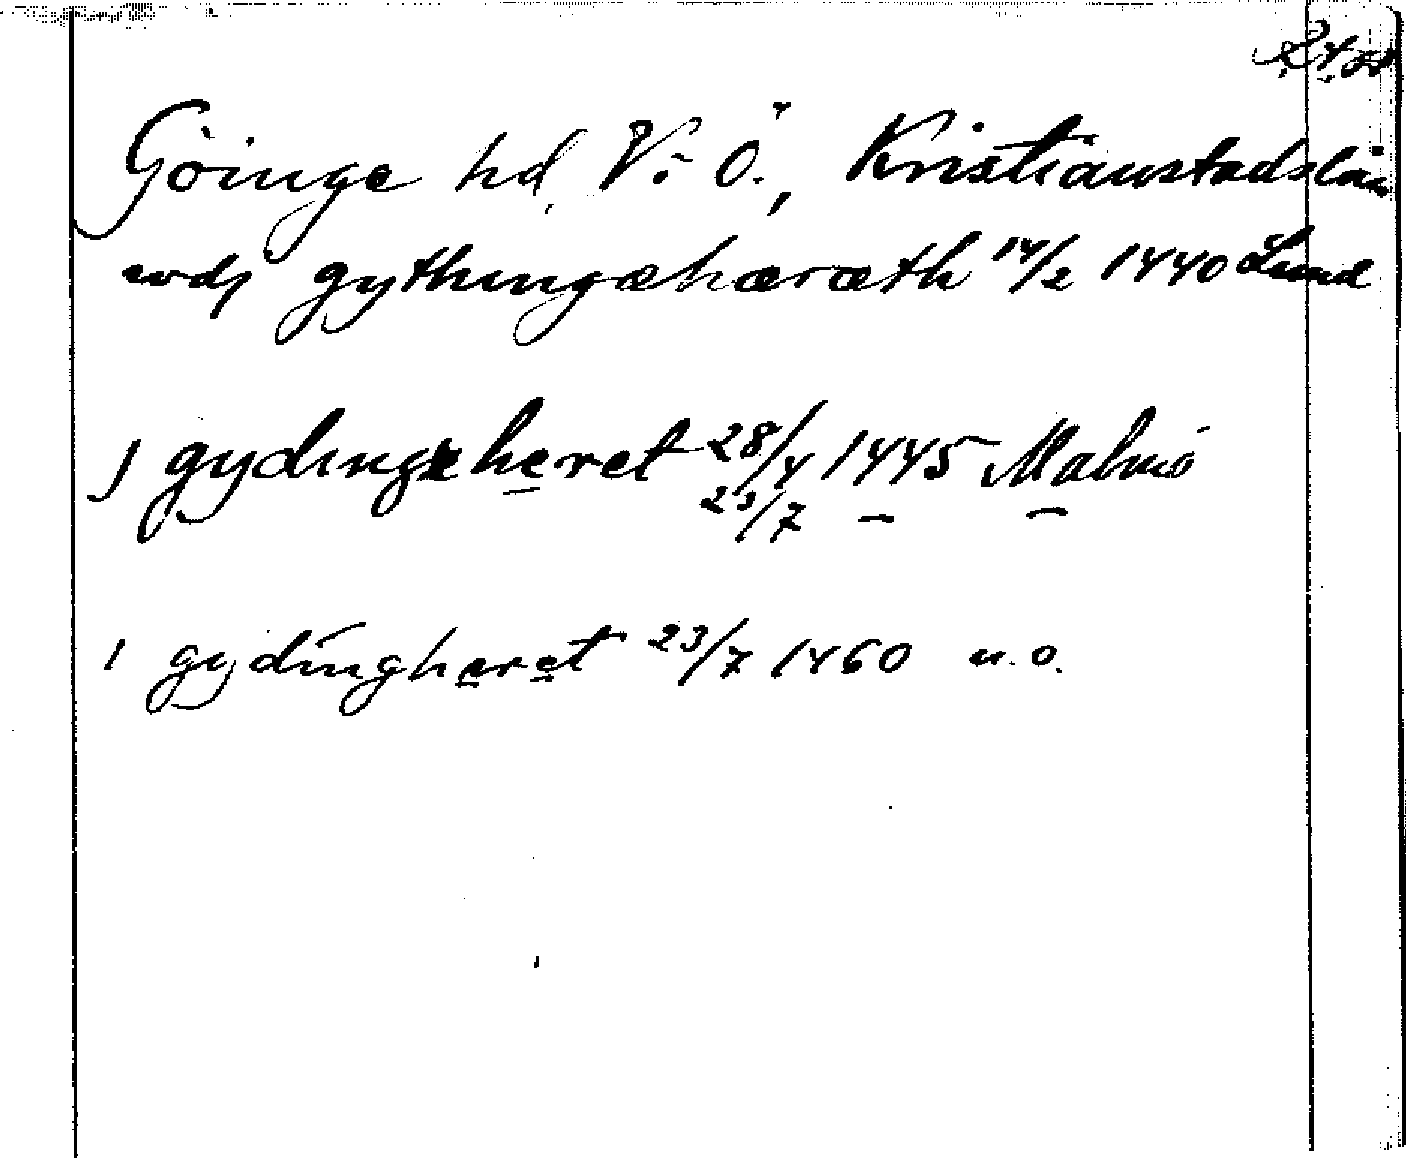 Göinge hd, V. Ö., Kristianstads län
udj gythingæhæræth 14/2 1440 Lund
j gydingeheret 28/4 1445 Malmö
23/7 — —
i gydingheret 23/7 1460 u. o.